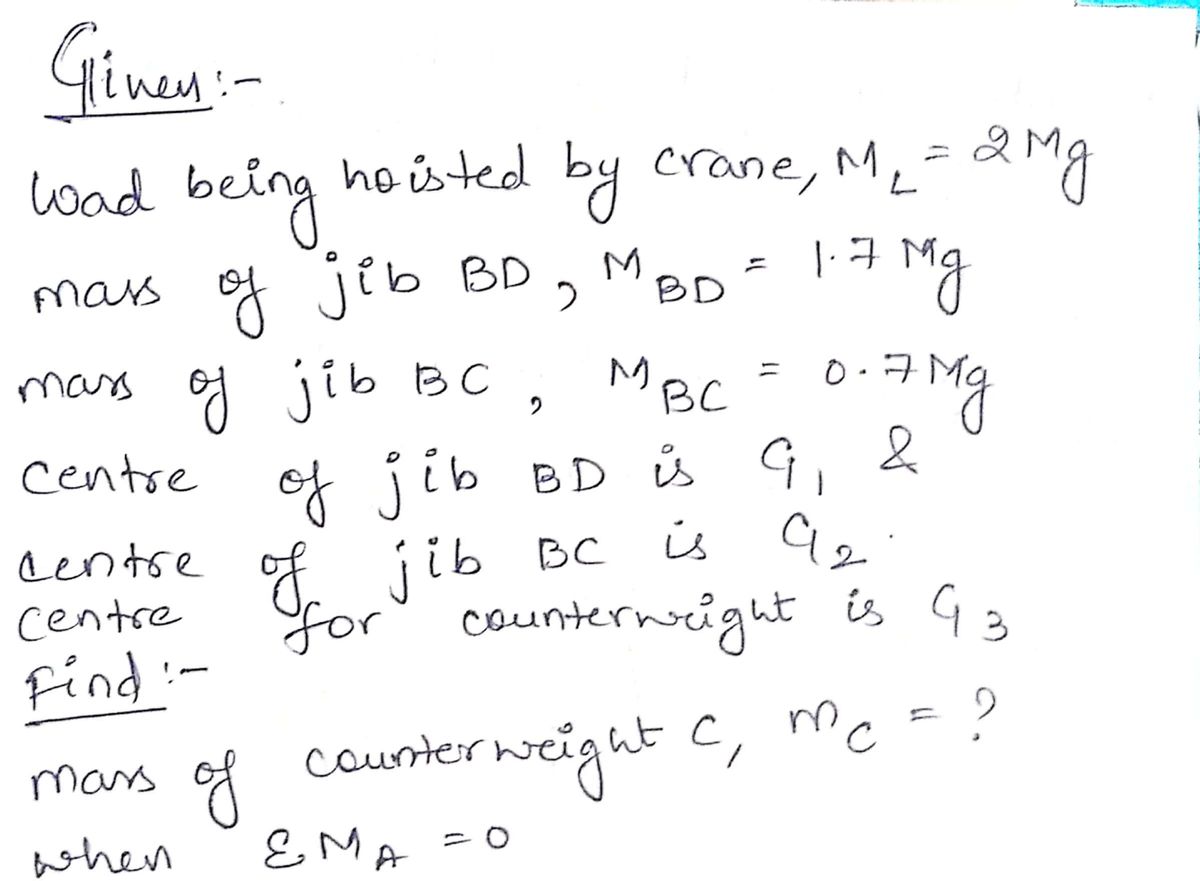 Given:-
load being hoisted by crane, M_L = 2 Mg
mass of jib BD, M_BD = 1.7 Mg
mass of jib BC, M_BC = 0.7 Mg
Centre of jib BD is G₁ &
centre of jib BC is G₂.
Centre for counterweight is G₃
Find :-
mass of counterweight C, m_C = ?
when ΣM_A = 0